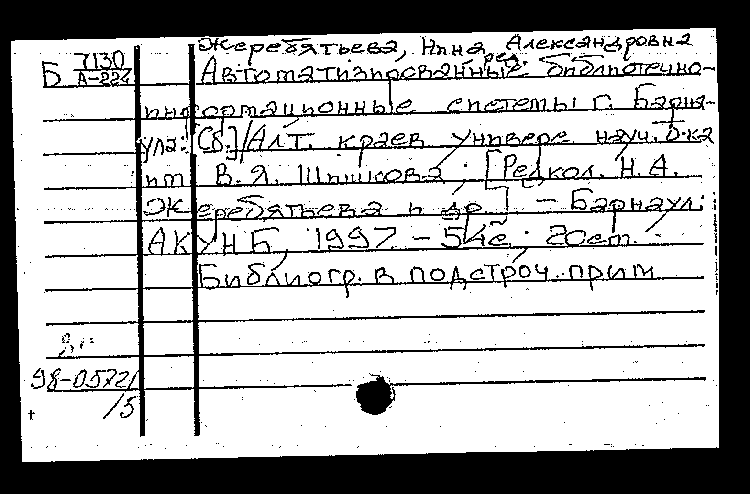 Жеребятьева, Нина Александровна
ред.
Б 7130
А-224
Автоматизированные библиотечно-
информационные системы г. Барна-
ула: [Сб.] / Алт. краев универс науч. б-ка
им В. Я. Шишкова; [Редкол. Н. А.
Жеребятьева и др.] - Барнаул:
АКУНБ, 1997 - 54с; 20см.
Библиогр. в подстроч. прим
98-05721
/5